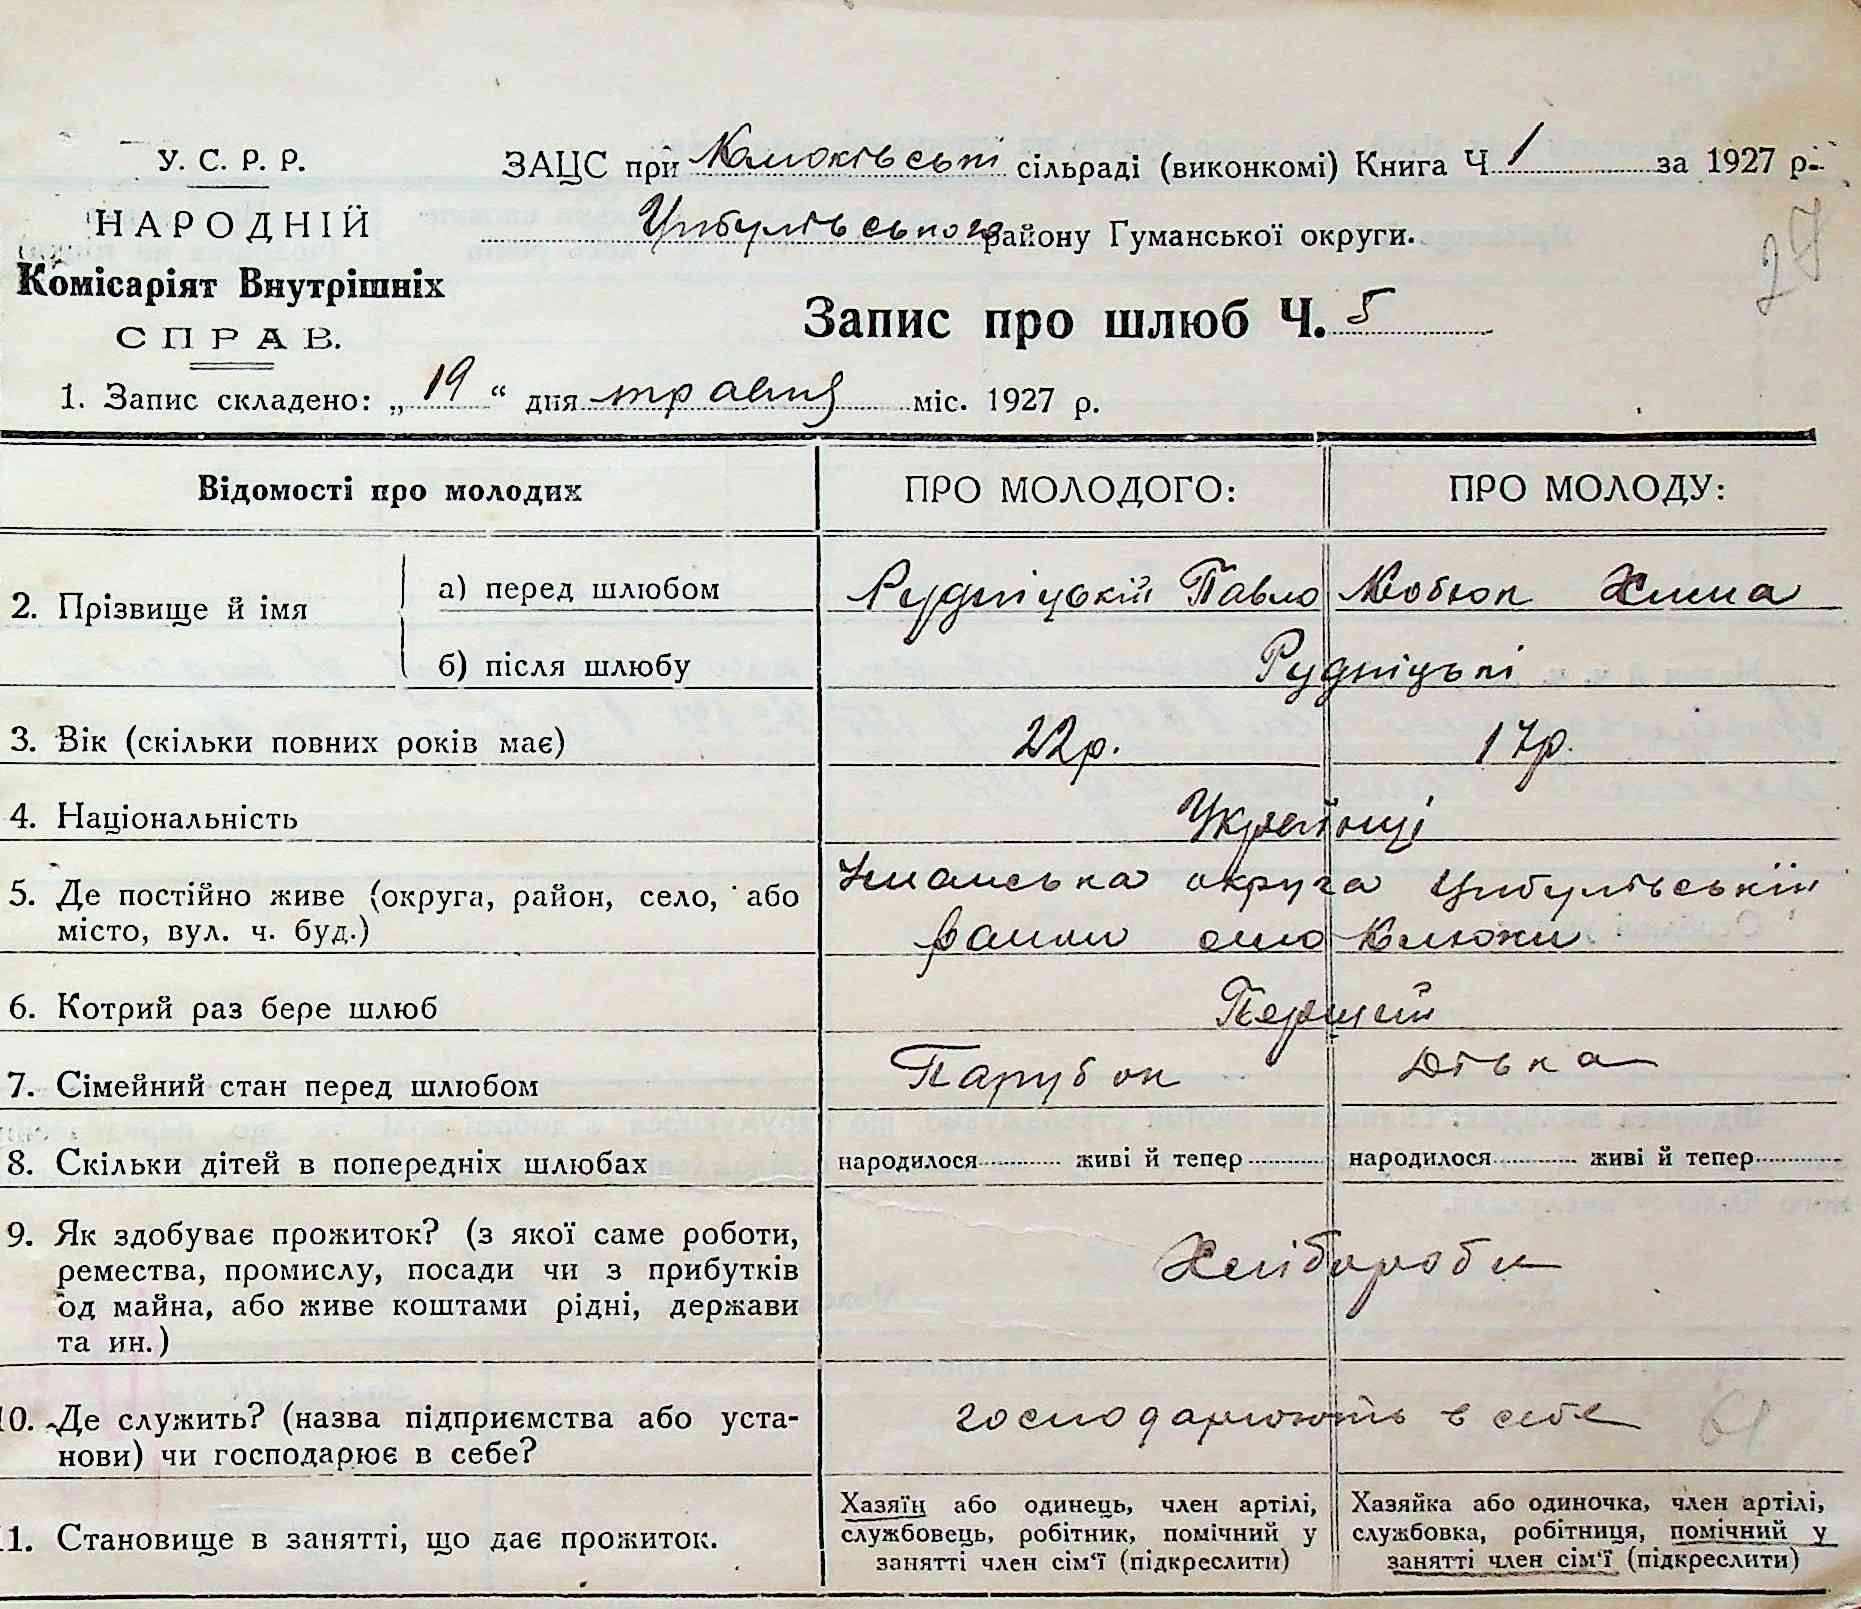 У. С. Р. Р.
НАРОДНІЙ
Комісаріят Внутрішніх
СПРАВ.
ЗАЦС при сільраді (виконкомі) Книга Ч. 1 за 1927 р.
Цибулівського району Гуманської округи.
27
Запис про шлюб Ч. 5
1. Запис складено: „ 19 “ дня травня міс. 1927 р.
Відомості про молодих
ПРО МОЛОДОГО:
ПРО МОЛОДУ:
2. Прізвище й імя
а) перед шлюбом
Рудніцький Павло
б) після шлюбу
Рудніцькі
3. Вік (скільки повних років має)
22р.
17р.
4. Національність
Українці
5. Де постійно живе (округа, район, село, або
місто, вул. ч. буд.)
Уманська округа Цибулівський
район село Клюжки
6. Котрий раз бере шлюб
Перший
7. Сімейний стан перед шлюбом
Парубок
Дівка
8. Скільки дітей в попередніх шлюбах
народилося живі й тепер
народилося живі й тепер
9. Як здобуває прожиток? (з якої саме роботи,
ремества, промислу, посади чи з прибутків
од майна, або живе коштами рідні, держави
та ин.)
Хлібороби
10. Де служить? (назва підприємства або уста-
нови) чи господарює в себе?
господарюють в себе
61
11. Становище в занятті, що дає прожиток.
Хазяїн або одинець, член артілі,
службовець, робітник, помічний у
занятті член сім'ї (підкреслити)
Хазяйка або одиночка, член артілі,
службовка, робітниця, помічний у
занятті член сім'ї (підкреслити)